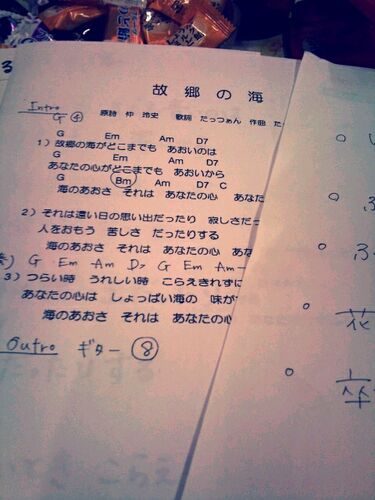 故郷の海
Intro
G ④
原詩 仲 玲史 歌詞 たっつぁん 作曲 た
G Em Am D7
1）故郷の海がどこまでも あおいのは
G Em Am D7
あなたの心がどこまでも あおいから
G Bm Am D7 C
海のあおさ それは あなたの心 あなた
2）それは遠い日の思い出だったり 寂しさだっ
人をおもう 苦しさ だったりする
海のあおさ それは あなたの心 あな
G Em Am D7 G Em Am
3）つらい時 うれしい時 こらえきれずに
あなたの心は しょっぱい海の 味が
海のあおさ それは あなたの心
Outro ギター ⑧
花
卒